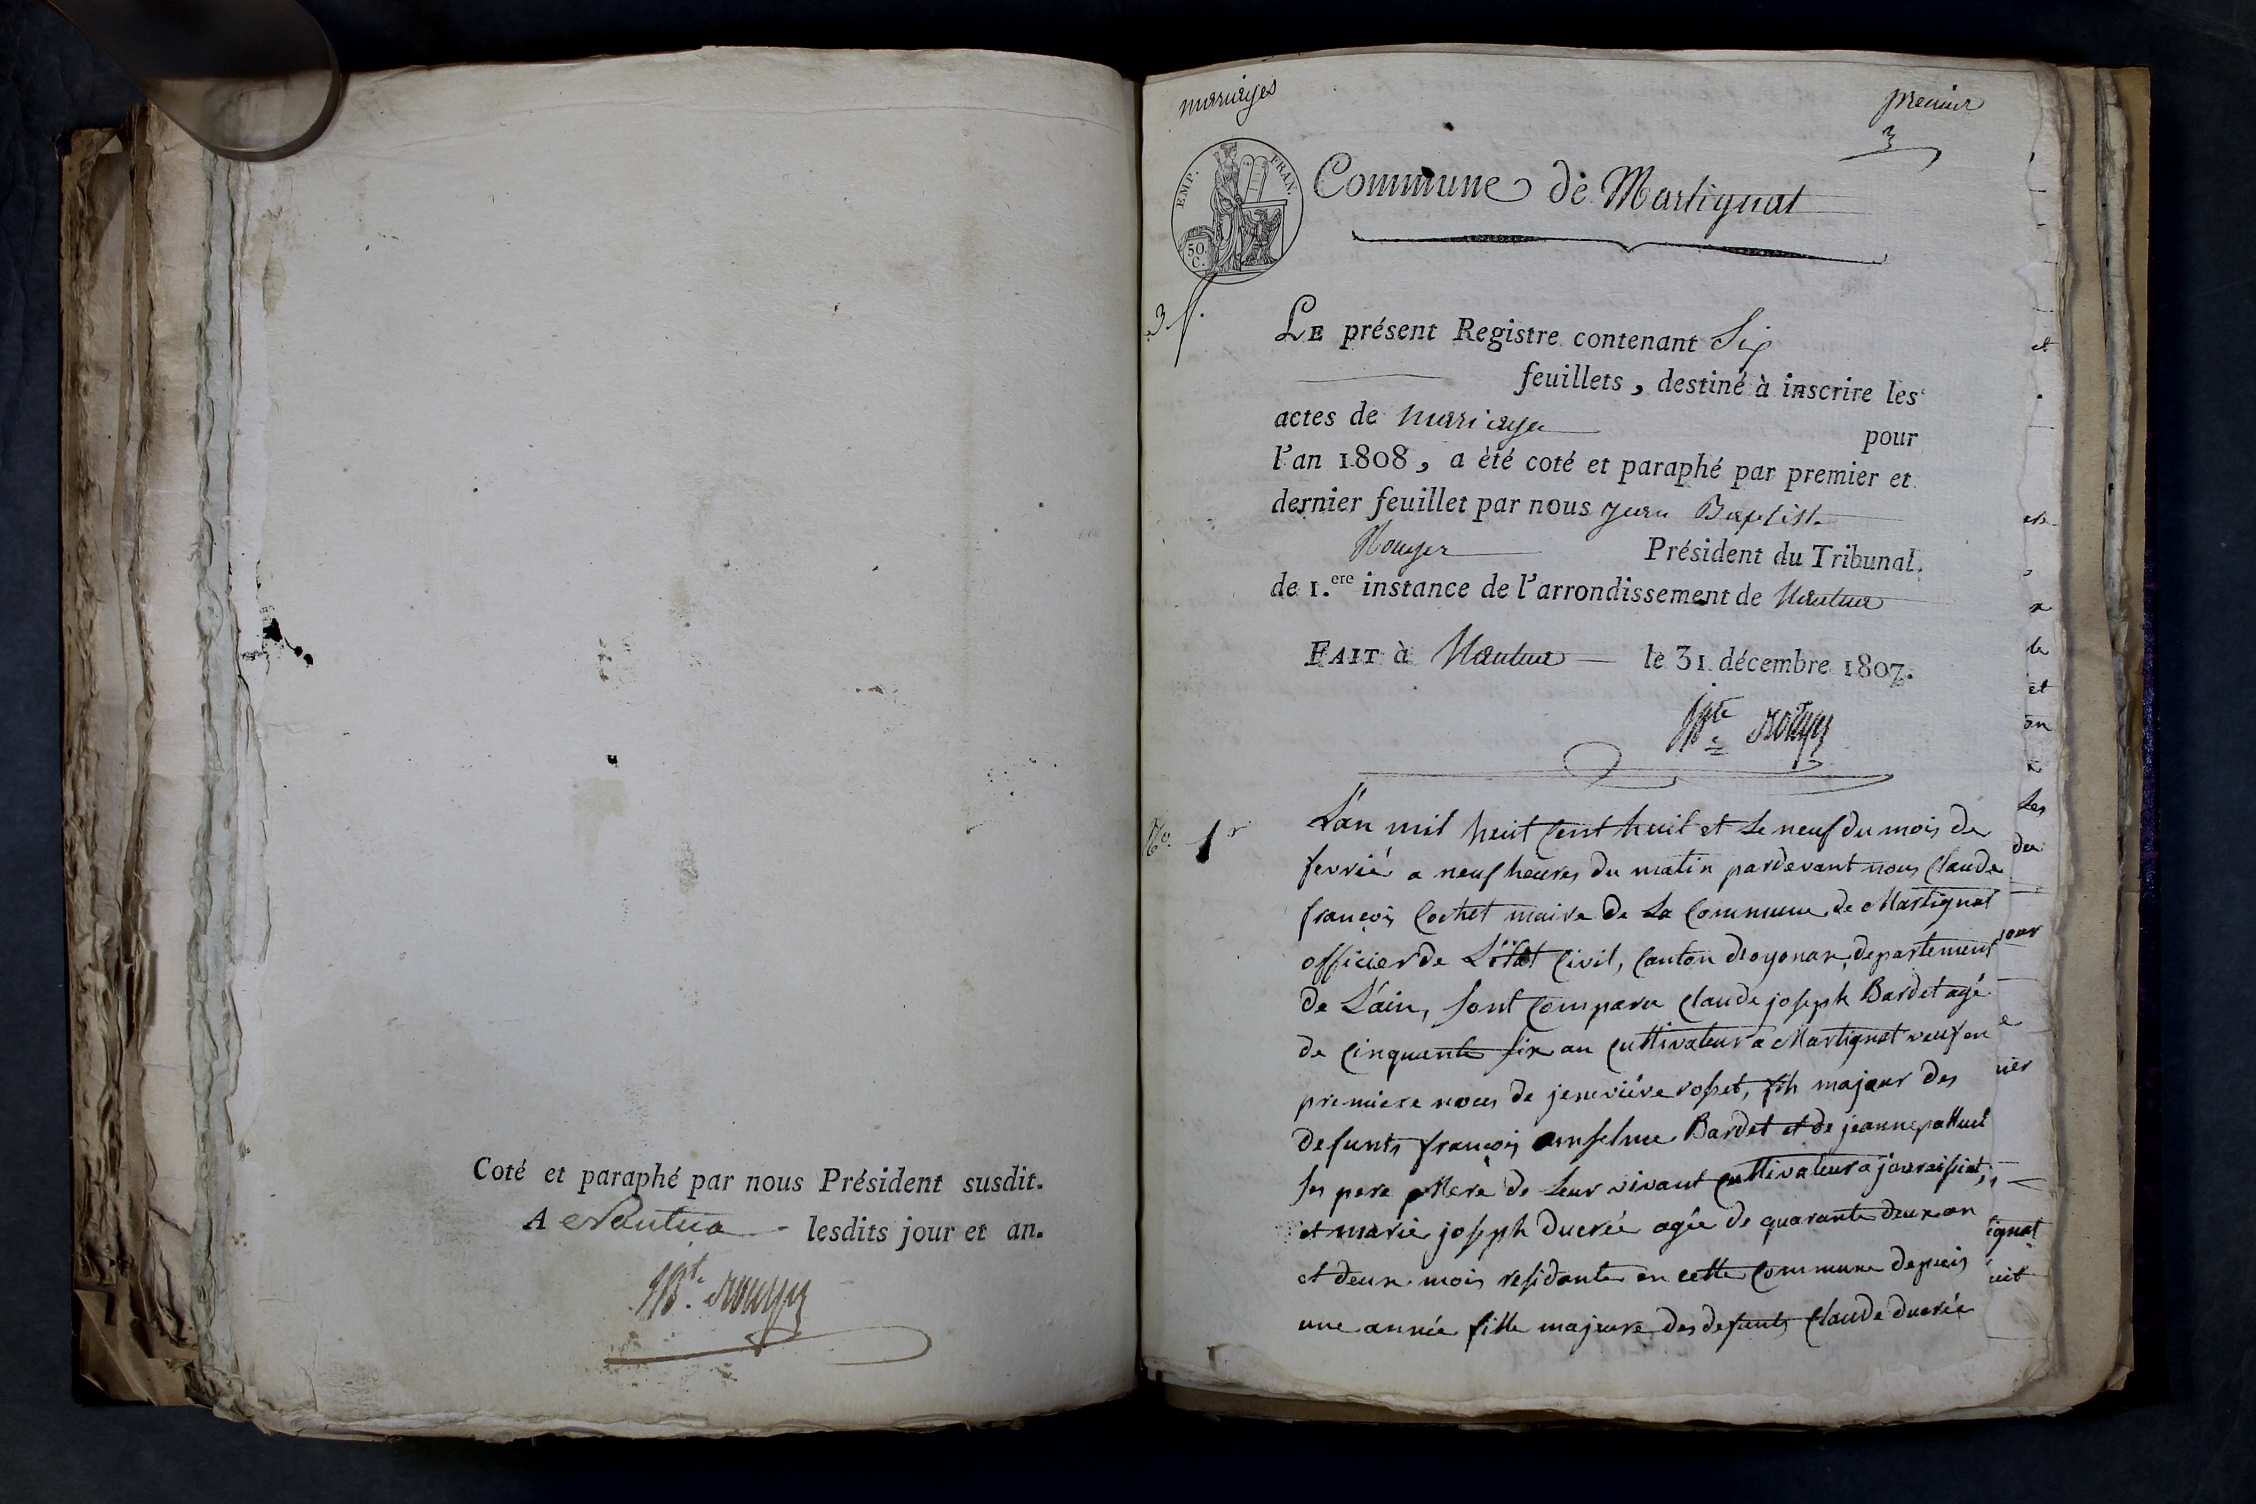 Coté et paraphé par nous Président susdit.
A Nantua lesdits jour et an.
JBte. Rouyer
marriages
premier
3
EMP. FRAN.
50 C.
Commune de Martignat
3 f.
LE présent Registre contenant Six
feuillets, destiné à inscrire les
actes de marriage
pour
l'an 1808, a été coté et paraphé par premier et
dernier feuillet par nous Jean Baptiste
Rouyer Président du Tribunal
de 1.ere instance de l'arrondissement de Nantua
FAIT à Nantua le 31 décembre 1807.
JBte Rouyer
No. 1r
L'an mil huit Cent huit et Le neuf du mois de
fevrié a neuf heures du matin pardevant nous Claude
françois Cochet maire de La Commune de Martignat
officier de L'état Civil, Canton d'oyonax, departement
de L'ain, sont Comparu Claude joseph Bardet agé
de Cinquante six an Cultivateur a Martignat veuf en
premiere noces de jeneviéve rosset, fils majeur des
defunts françois anselme Bardet et de jeanne
ses pere et Mere de Leur vivant Cultivateur a
et marie joseph Ducrée agée de quarante deux an
et deux mois residante en cette Commune depuis
une année fille majeure des defunts Claude ducrée